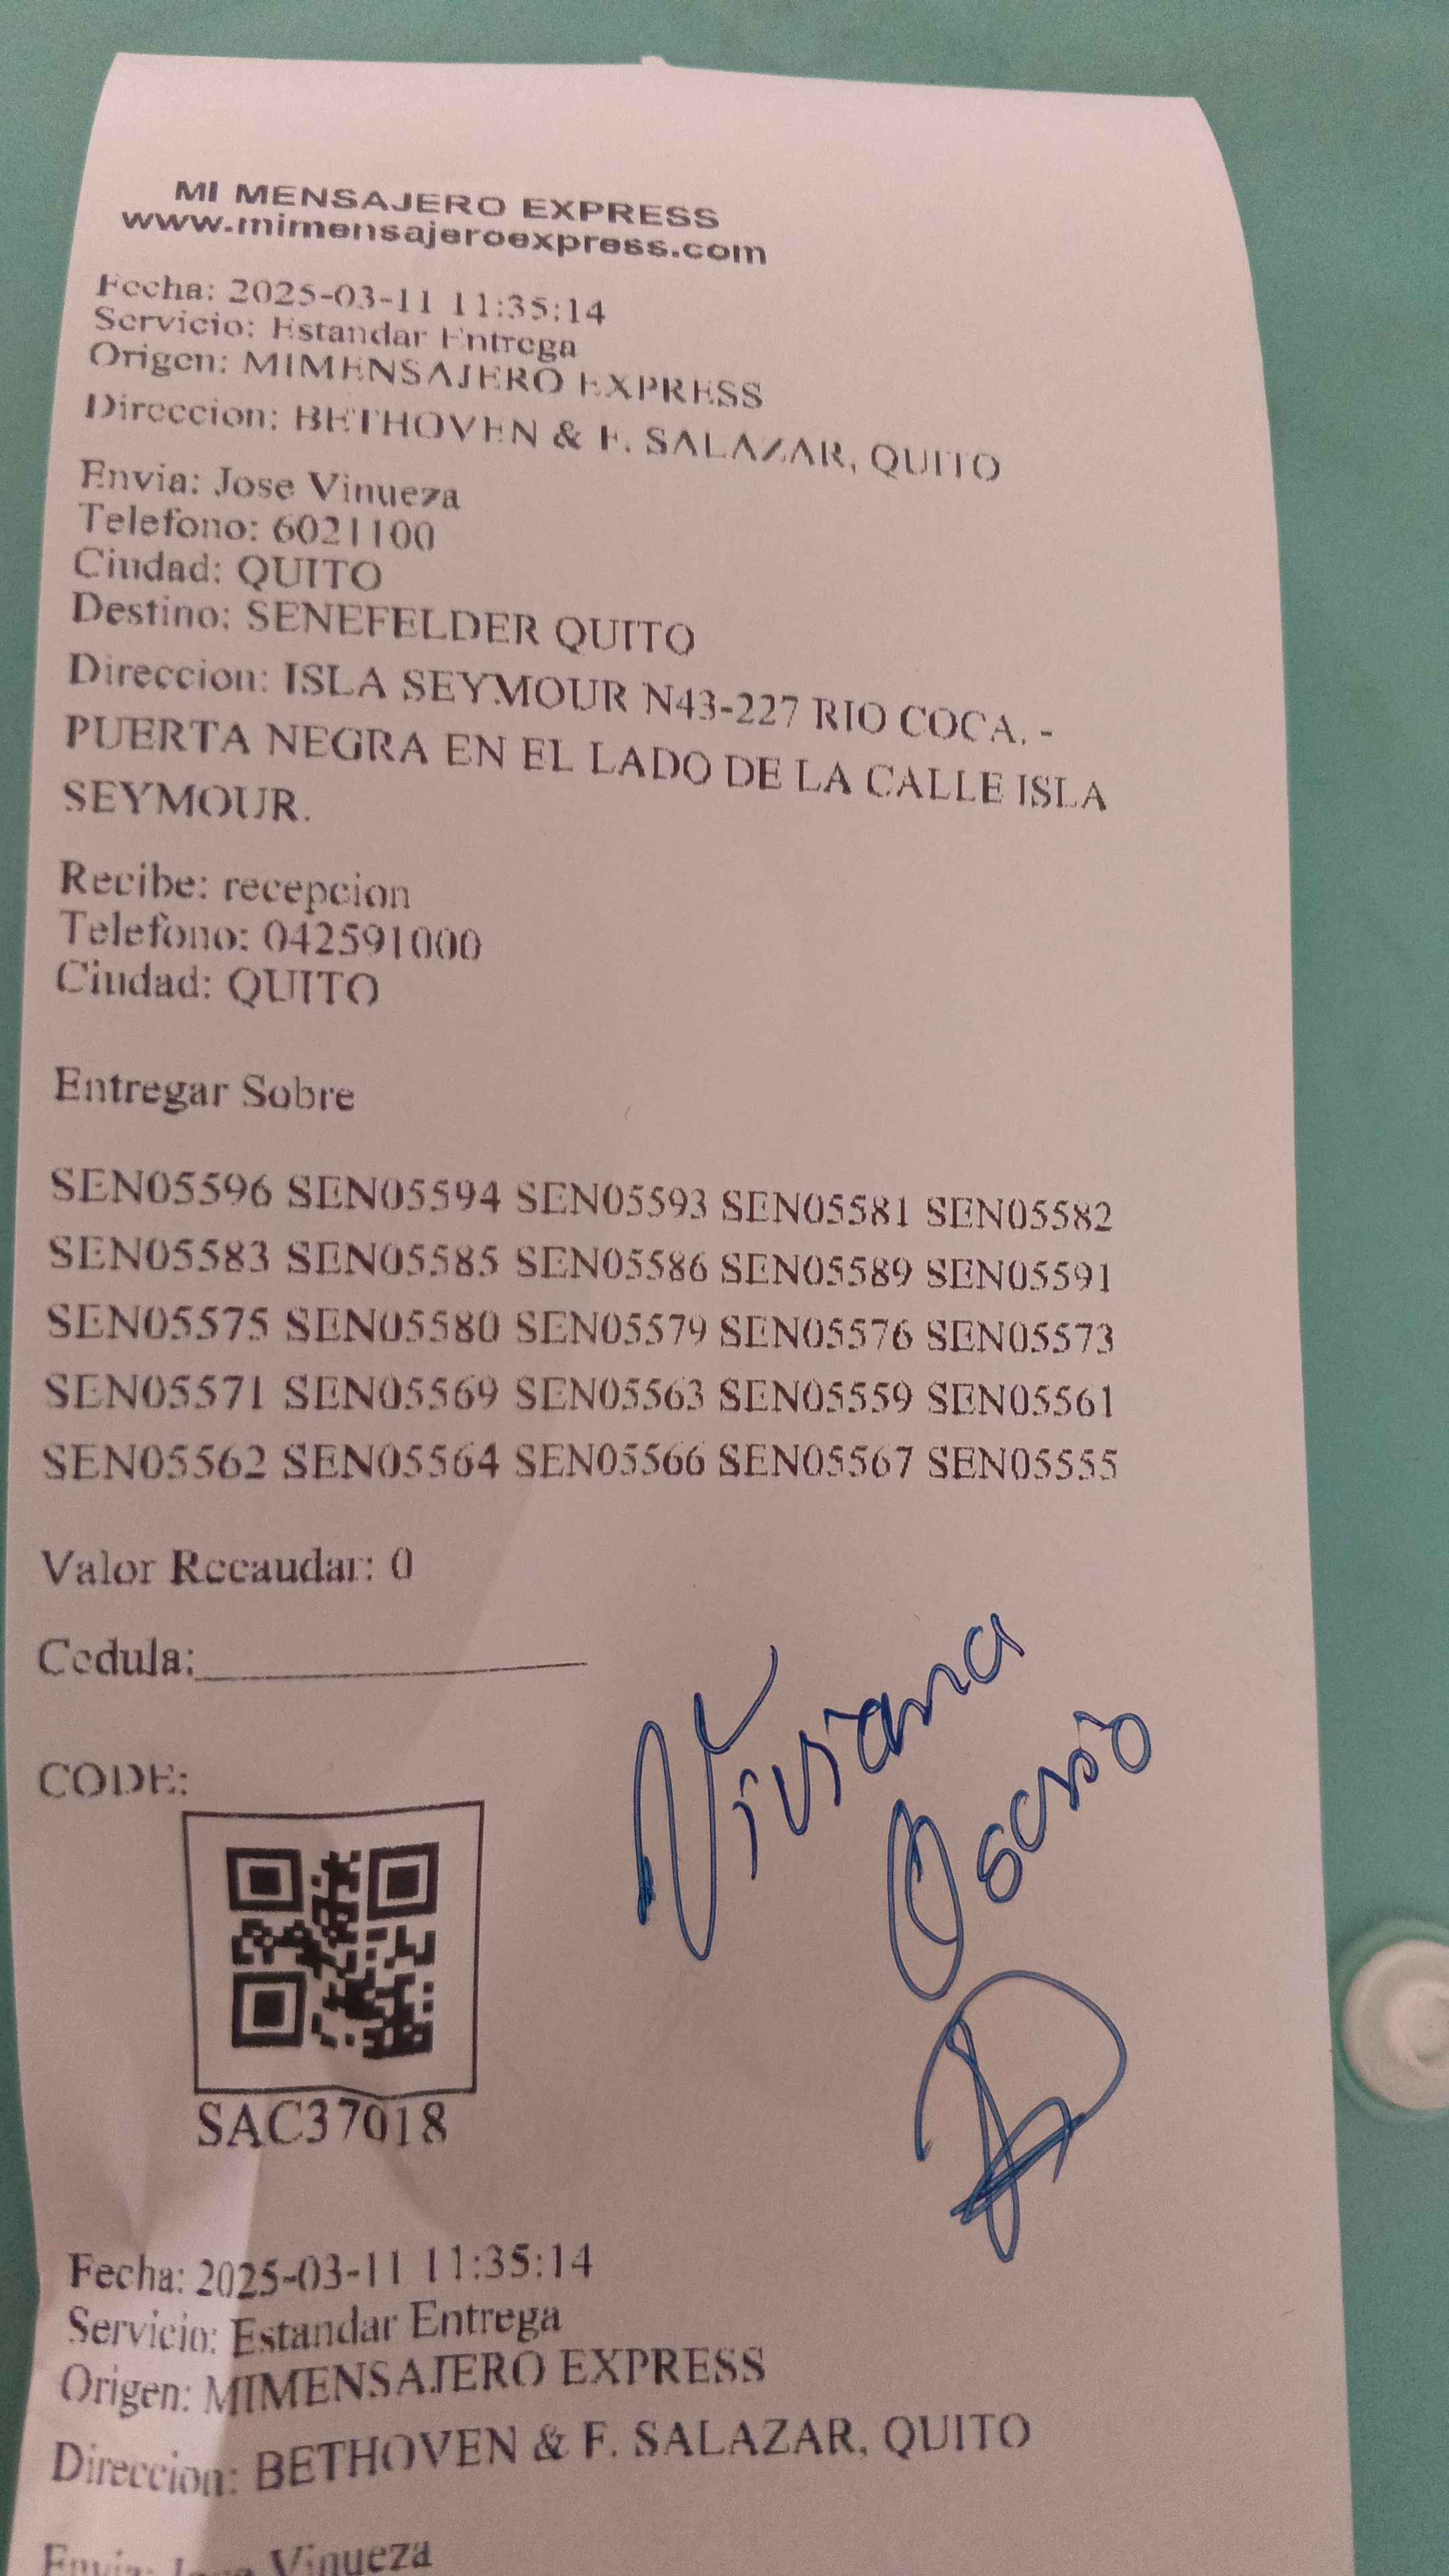 MI MENSAJERO EXPRESS
www.mimensajeroexpress.com
Fecha: 2025-03-11 11:35:14
Servicio: Estandar Entrega
Origen: MIMENSAJERO EXPRESS
Direccion: BETHOVEN & F. SALAZAR, QUITO
Envia: Jose Vinueza
Telefono: 6021100
Ciudad: QUITO
Destino: SENEFELDER QUITO
Direccion: ISLA SEYMOUR N43-227 RIO COCA. -
PUERTA NEGRA EN EL LADO DE LA CALLE ISLA
SEYMOUR.
Recibe: recepcion
Telefono: 042591000
Ciudad: QUITO
Entregar Sobre
SEN05596 SEN05594 SEN05593 SEN05581 SEN05582
SEN05583 SEN05585 SEN05586 SEN05589 SEN05591
SEN05575 SEN05580 SEN05579 SEN05576 SEN05573
SEN05571 SEN05569 SEN05563 SEN05559 SEN05561
SEN05562 SEN05564 SEN05566 SEN05567 SEN05555
Valor Recaudar: 0
Cedula:
Viviana
Osorio
CODE:
SAC37018
Fecha: 2025-03-11 11:35:14
Servicio: Estandar Entrega
Origen: MIMENSAJERO EXPRESS
Direccion: BETHOVEN & F. SALAZAR, QUITO
Envia: Jose Vinueza